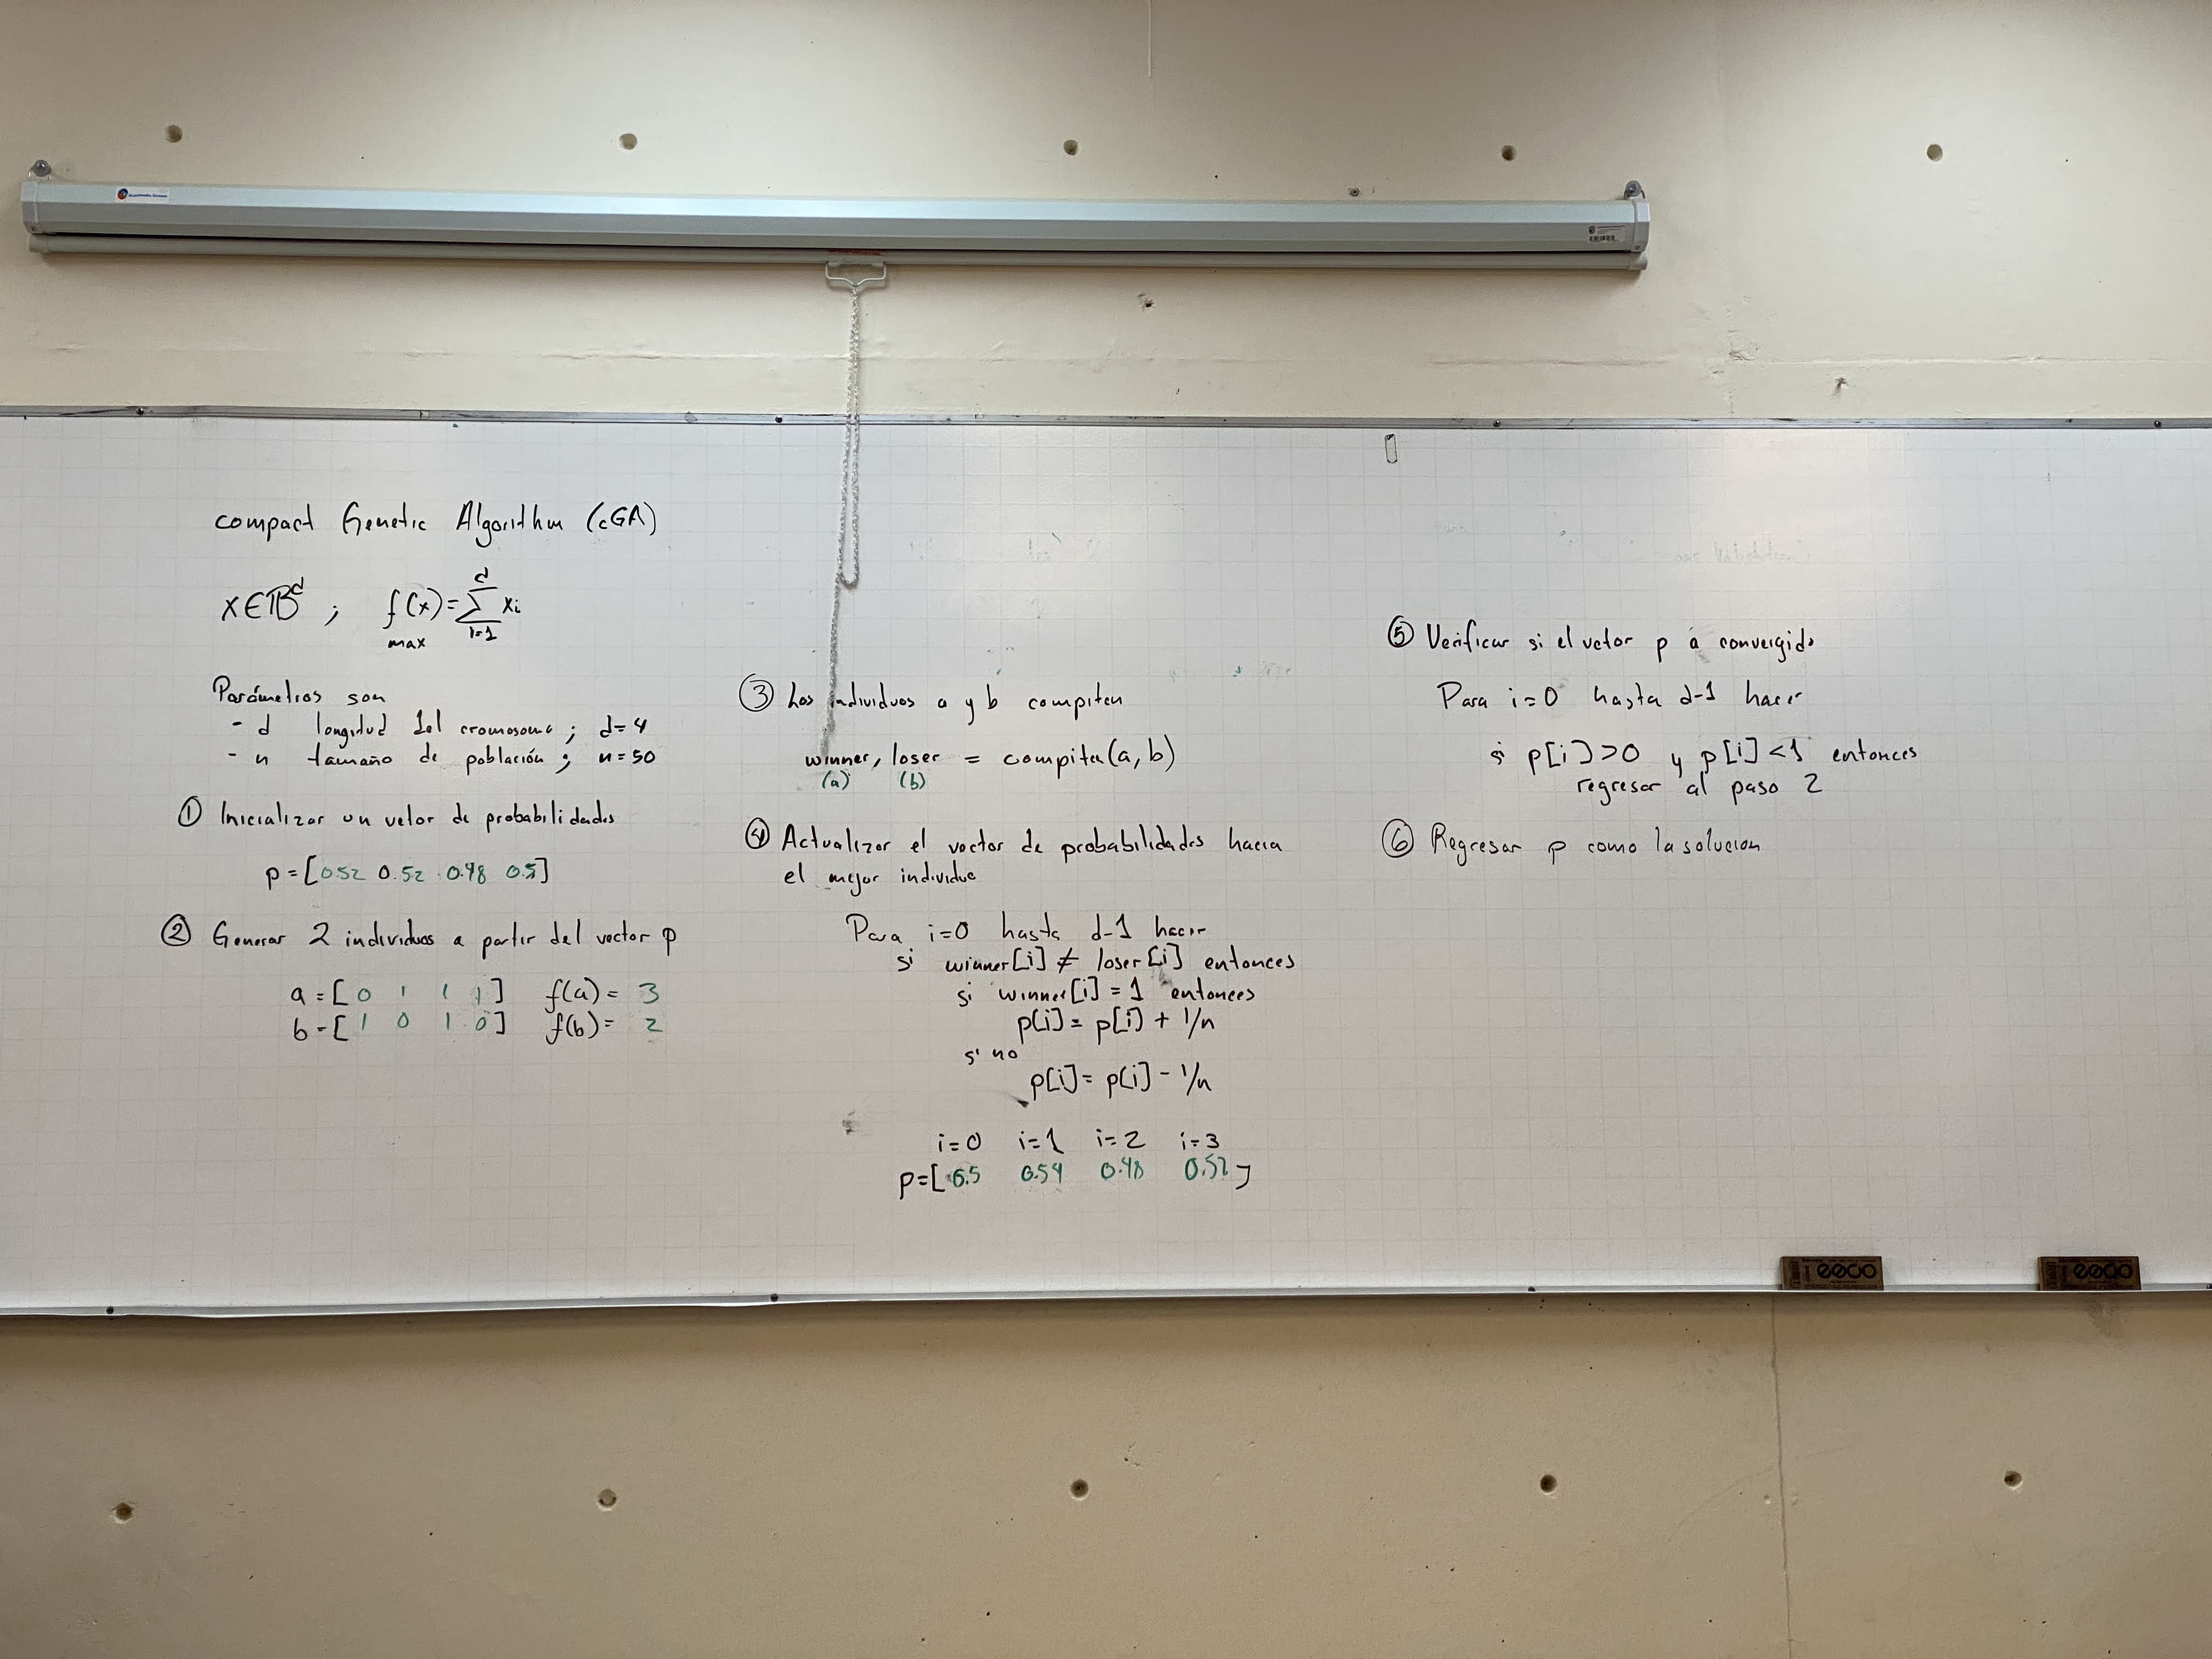 compact Genetic Algorithm (cGA)
x ∈ 𝔹^d ; f(x) = Σ xi
d
max
i=1
Parámetros son
- d longitud del cromosoma ; d=4
- n tamaño de población ; n=50
① Inicializar un vetor de probabilidades
p = [0.52 0.52 0.48 0.5]
② Generar 2 individuos a partir del vector p
a = [ 0 1 1 1 ] f(a) = 3
b = [ 1 0 1 0 ] f(b) = 2
③ Los individuos a y b compiten
winner, loser = compiten(a, b)
(a) (b)
④ Actualizar el vector de probabilidades hacia
el mejor individuo
Para i=0 hasta d-1 hacer
si winner[i] ≠ loser[i] entonces
si winner[i] = 1 entonces
p[i] = p[i] + 1/n
si no
p[i] = p[i] - 1/n
i=0 i=1 i=2 i=3
p=[ 0.5 0.54 0.48 0.52 ]
⑤ Verificar si el vetor p a convergido
Para i=0 hasta d-1 hacer
si p[i]>0 y p[i]<1 entonces
regresar al paso 2
⑥ Regresar p como la solucion